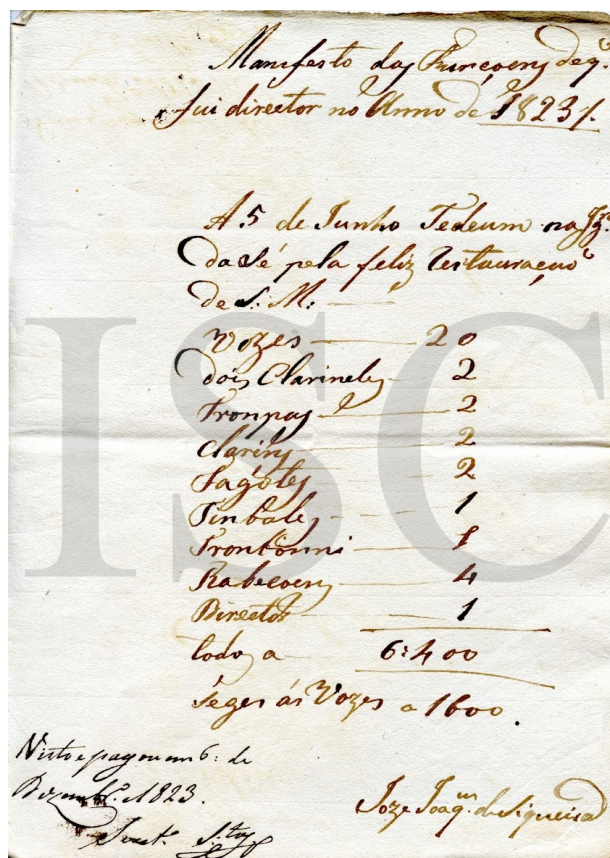 Manifesto das Funçoens de q.
fui director no Anno de 1823/.
A 5 de Junho Tedeum na Igr.ª
da Sé pela feliz Restauração
de S. M.
Vozes — 20
dois Clarinetes — 2
Trompas — 2
Clarins — 2
Fagotes — 2
Tinbales — 1
Tronbonni — 1
Rabecoens — 4
Director — 1
todos a 6:400
Seges ás Vozes a 1600.
Visto e pagou em 6: de
Dezembro. 1823.
Joze Joaq.m de Siqueira
ISC